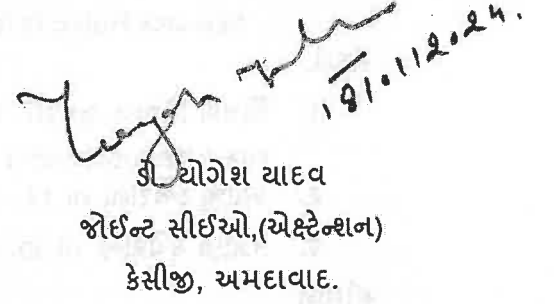 18/01/2024.
ડૉ યોગેશ યાદવ
જોઈન્ટ સીઈઓ,(એક્ષ્ટેન્શન)
કેસીજી, અમદાવાદ.